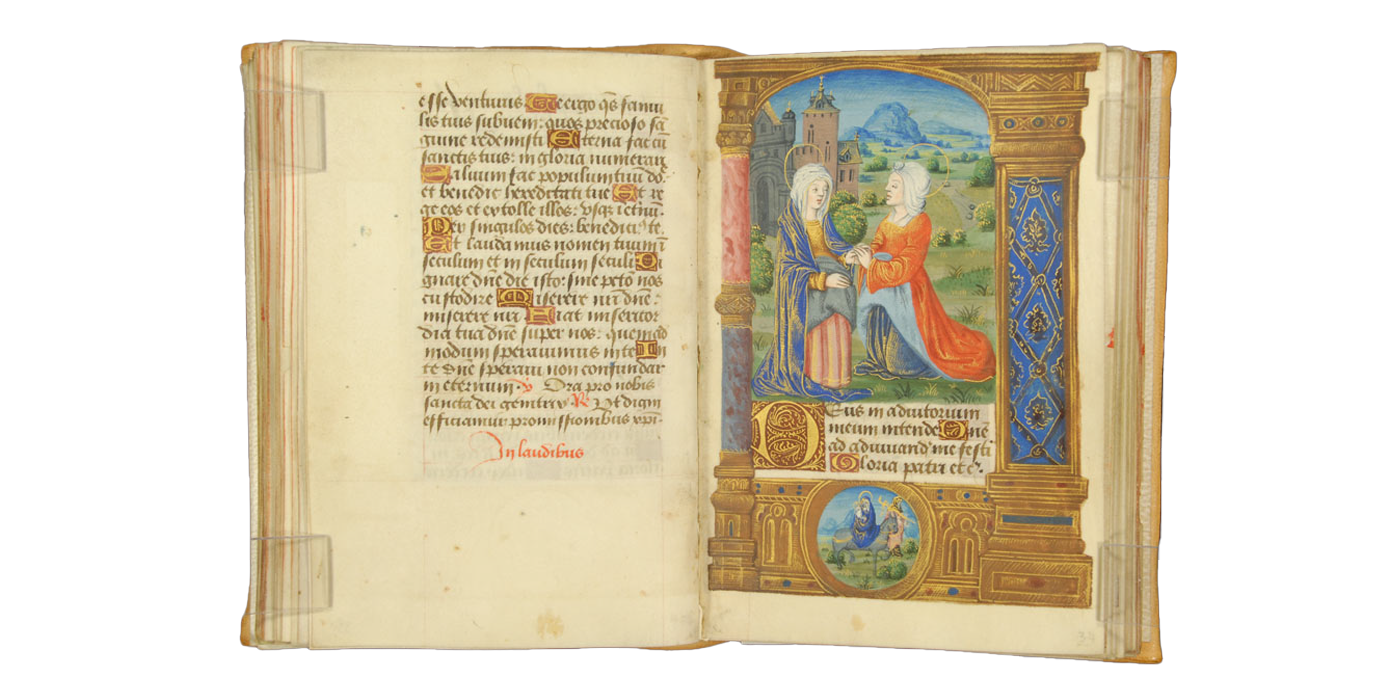 esse venturus Te ergo q̄s famu
lis tuis subueni: quos precioso sā
guine redemisti Eterna fac cū
sanctis tuis: in gloria numerari
Saluum fac populum tuū dō.
et benedic hereditati tue Et re
ge eos et extolle illos: vsq; ī etnū.
Per singulos dies: benedici te.
Et laudamus nomen tuum ī
seculum et in seculum seculi Di
gnare dn̄e die isto: sine petō nos
custodire Miserere nr̄i dn̄e:
miserere nr̄i Fiat misericor
dia tua dn̄e super nos: quemad
modum sperauimus in te In
te dn̄e speraui non confundar
in eternum. ℣ Ora pro nobis
sancta dei genitrix ℟ Vt digni
efficiamur promissionibus xpi.
In laudibus
Deus in adiutorium
meum intende Dn̄e
ad adiuuand' me festi
Gloria patri et c̄.
37